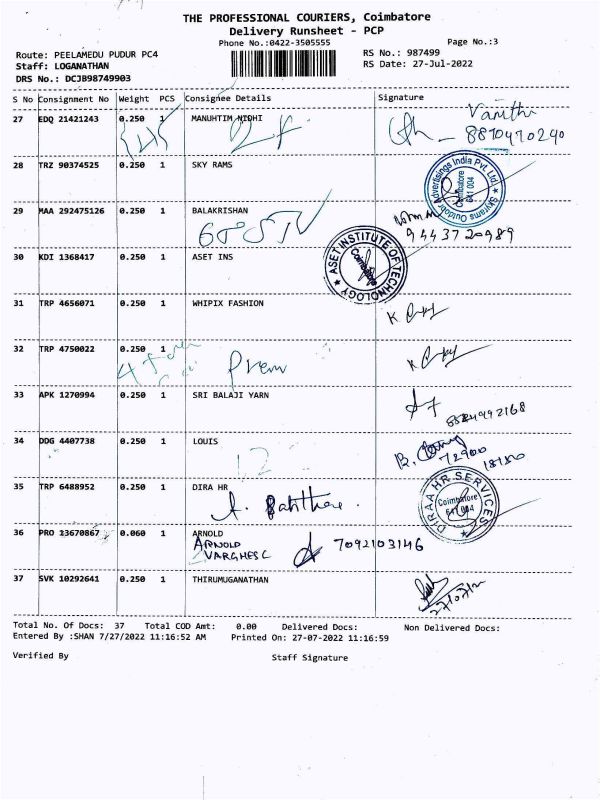 THE PROFESSIONAL COURIERS, Coimbatore
Delivery Runsheet - PCP
Phone No.:0422-3505555
Page No.:3
Route: PEELAMEDU PUDUR PC4
RS No.: 987499
Staff: LOGANATHAN
RS Date: 27-Jul-2022
DRS No.: DCJB98749903
S No Consignment No Weight PCS Consignee Details Signature
27 EDQ 21421243 0.250 1 MANUHTIM NIDHI
8870470290
28 TRZ 90374525 0.250 1 SKY RAMS
Skyrams Outdoor Advertisings India Pvt. Ltd
Coimbatore
641 004
29 MAA 292475126 0.250 1 BALAKRISHAN
9443720989
30 KDI 1368417 0.250 1 ASET INS
ASET INSTITUTE OF TECHNOLOGY
Coimbatore
31 TRP 4656071 0.250 1 WHIPIX FASHION
32 TRP 4750022 0.250 1
Prem
33 APK 1270994 0.250 1 SRI BALAJI YARN
34 DDG 4407738 0.250 1 LOUIS
12
35 TRP 6488952 0.250 1 DIRA HR
DIRAA HR SERVICES
Coimbatore
641 004
36 PRO 13670867 0.060 1 ARNOLD
ARNOLD
VARGHESE
7092103146
37 SVK 10292641 0.250 1 THIRUMUGANATHAN
Total No. Of Docs: 37 Total COD Amt: 0.00 Delivered Docs: Non Delivered Docs:
Entered By :SHAN 7/27/2022 11:16:52 AM Printed On: 27-07-2022 11:16:59
Verified By Staff Signature